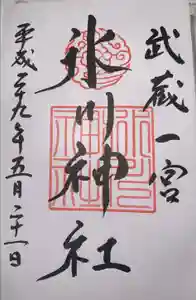 武蔵一宮
氷川神社
平成二十九年五月二十一日